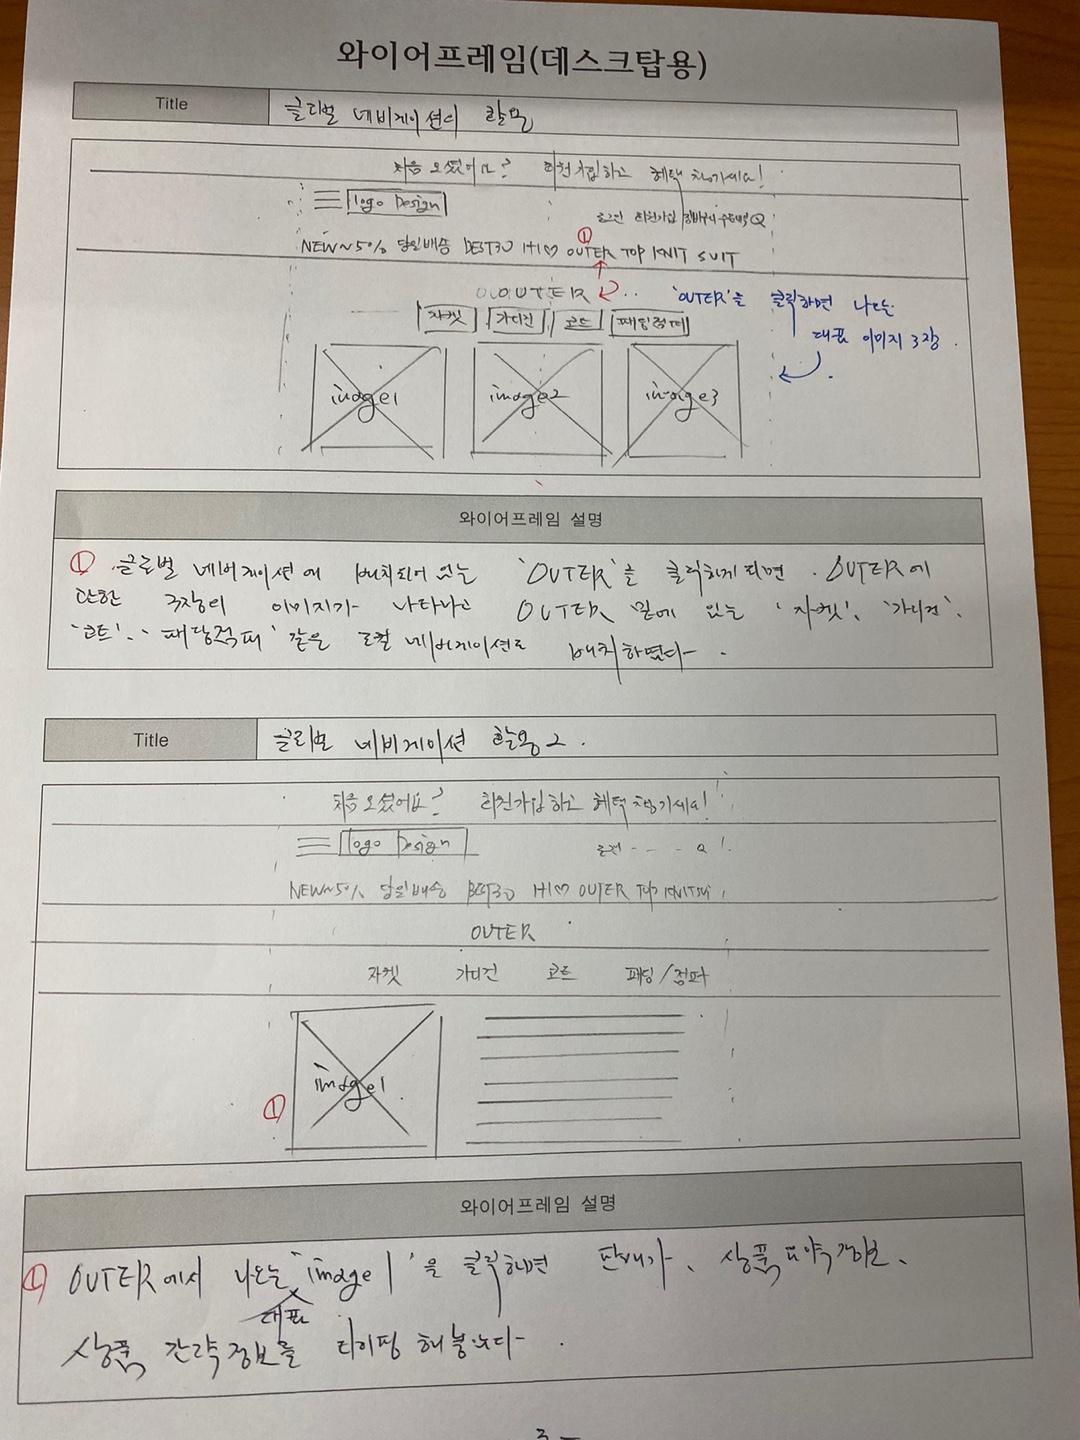 와이어프레임(데스크탑용)
Title
글로벌 네비게이션의 활용
처음 오셨어요? 회원가입하고 혜택 챙기세요!
logo Design
로그인 회원가입 장바구니 주문배송 Q
①
NEW~5% 당일배송 BEST30 HI♡ OUTER TOP KNIT SUIT
OUTER
'OUTER'를 클릭하면 나오는
대표 이미지 3장.
자켓 가디건 코트 패딩점퍼
image1 image2 image3
와이어프레임 설명
① 글로벌 네비게이션에 배치되어 있는 'OUTER'를 클릭하게 되면. OUTER에
관한 3장의 이미지가 나타나고 OUTER 밑에 있는 '자켓', '가디건',
'코트', '패딩점퍼' 같은 로컬 네비게이션도 배치하였다.
Title
글로벌 네비게이션 활용 2.
처음 오셨어요? 회원가입하고 혜택 챙기세요!
logo Design
로그인 - - - Q
NEW~5% 당일배송 BEST30 HI♡ OUTER TOP KNIT SUIT
OUTER
자켓 가디건 코트 패딩/점퍼
image1
①
와이어프레임 설명
① OUTER에서 나오는 대표 'image1'을 클릭하면 판매가, 상품요약정보,
상품 간략정보를 타이핑 해놓았다.